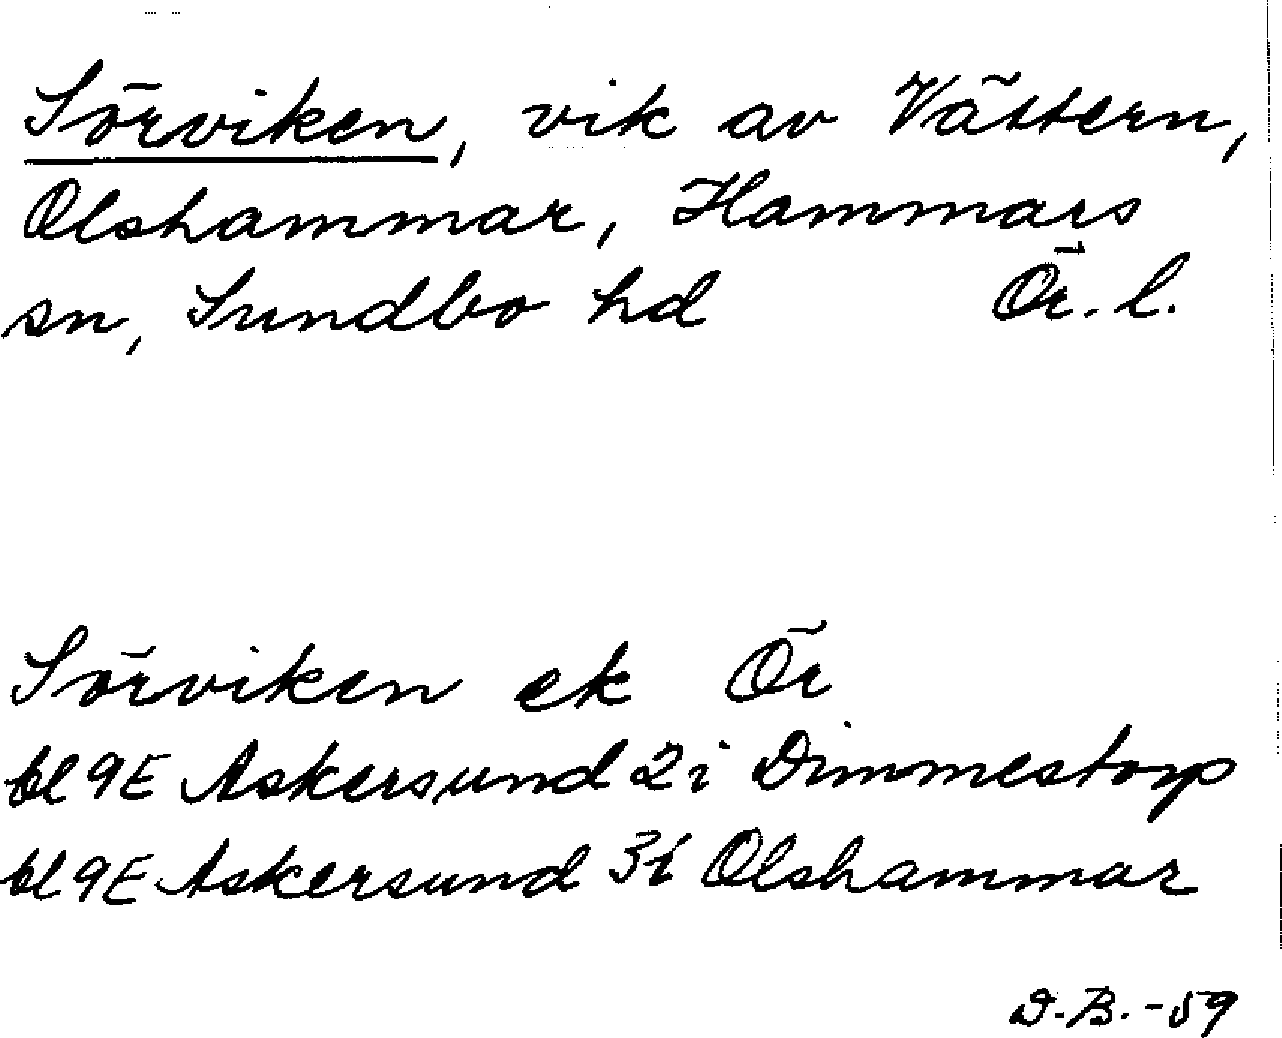 Sörviken, vik av Vättern,
Olshammar, Hammars
sn, Sundbo hd Ör. l.
Sörviken ek Ör
bl 9E Askersund 2i Dimmestorp
bl 9E Askersund 3i Olshammar
D.B. -59